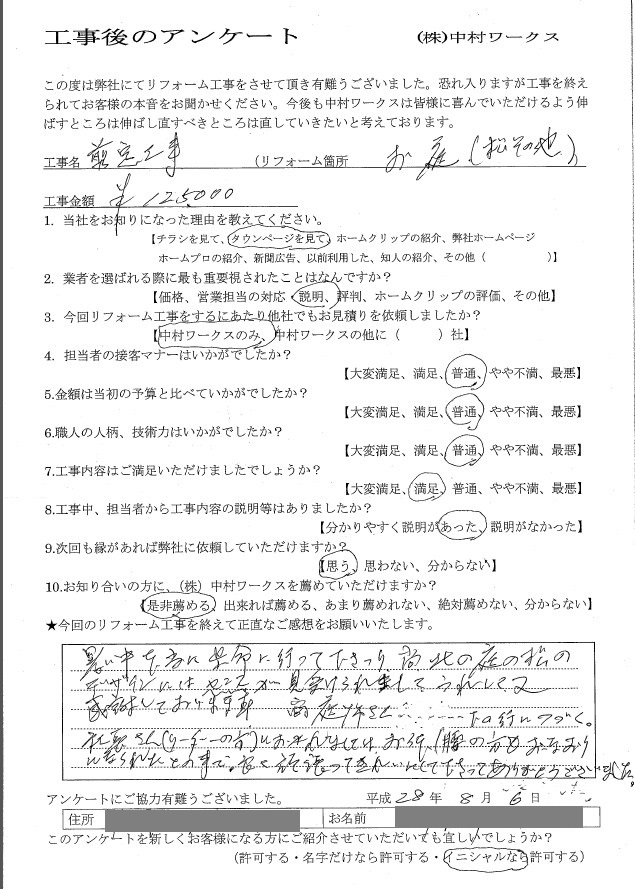 工事後のアンケート (株)中村ワークス
この度は弊社にてリフォーム工事をさせて頂き有難うございました。恐れ入りますが工事を終え
られてお客様の本音をお聞かせください。今後も中村ワークスは皆様に喜んでいただけるよう伸
ばすところは伸ばし直すべきところは直していきたいと考えております。
工事名 剪定工事 (リフォーム箇所 お庭(松その他)
工事金額 ¥125000
1. 当社をお知りになった理由を教えてください。
【チラシを見て、タウンページを見て、ホームクリップの紹介、弊社ホームページ
ホームプロの紹介、新聞広告、以前利用した、知人の紹介、その他( )】
2. 業者を選ばれる際に最も重要視されたことはなんですか?
【価格、営業担当の対応・説明、評判、ホームクリップの評価、その他】
3. 今回リフォーム工事をするにあたり他社でもお見積りを依頼しましたか?
【中村ワークスのみ、中村ワークスの他に( )社】
4. 担当者の接客マナーはいかがでしたか?
【大変満足、満足、普通、やや不満、最悪】
5.金額は当初の予算と比べていかがでしたか?
【大変満足、満足、普通、やや不満、最悪】
6.職人の人柄、技術力はいかがでしたか?
【大変満足、満足、普通、やや不満、最悪】
7.工事内容はご満足いただけましたでしょうか?
【大変満足、満足、普通、やや不満、最悪】
8.工事中、担当者から工事内容の説明等はありましたか?
【分かりやすく説明があった、説明がなかった】
9.次回も縁があれば弊社に依頼していただけますか?
【思う、思わない、分からない】
10.お知り合いの方に、(株)中村ワークスを薦めていただけますか?
【是非薦める、出来れば薦める、あまり薦めれない、絶対薦めない、分からない】
★今回のリフォーム工事を終えて正直なご感想をお願いいたします。
暑い中を 行って下さり、 の庭の松の
デザインにはセンスが見受けられましてうれしくて
感謝しております 下の行につづく。
さん(リーダーの方)
ありがとうございました。
アンケートにご協力有難うございました。 平成28年 8月 6日
住所 お名前
このアンケートを新しくお客様になる方にご紹介させていただいても宜しいでしょうか?
(許可する・名字だけなら許可する・イニシャルなら許可する)